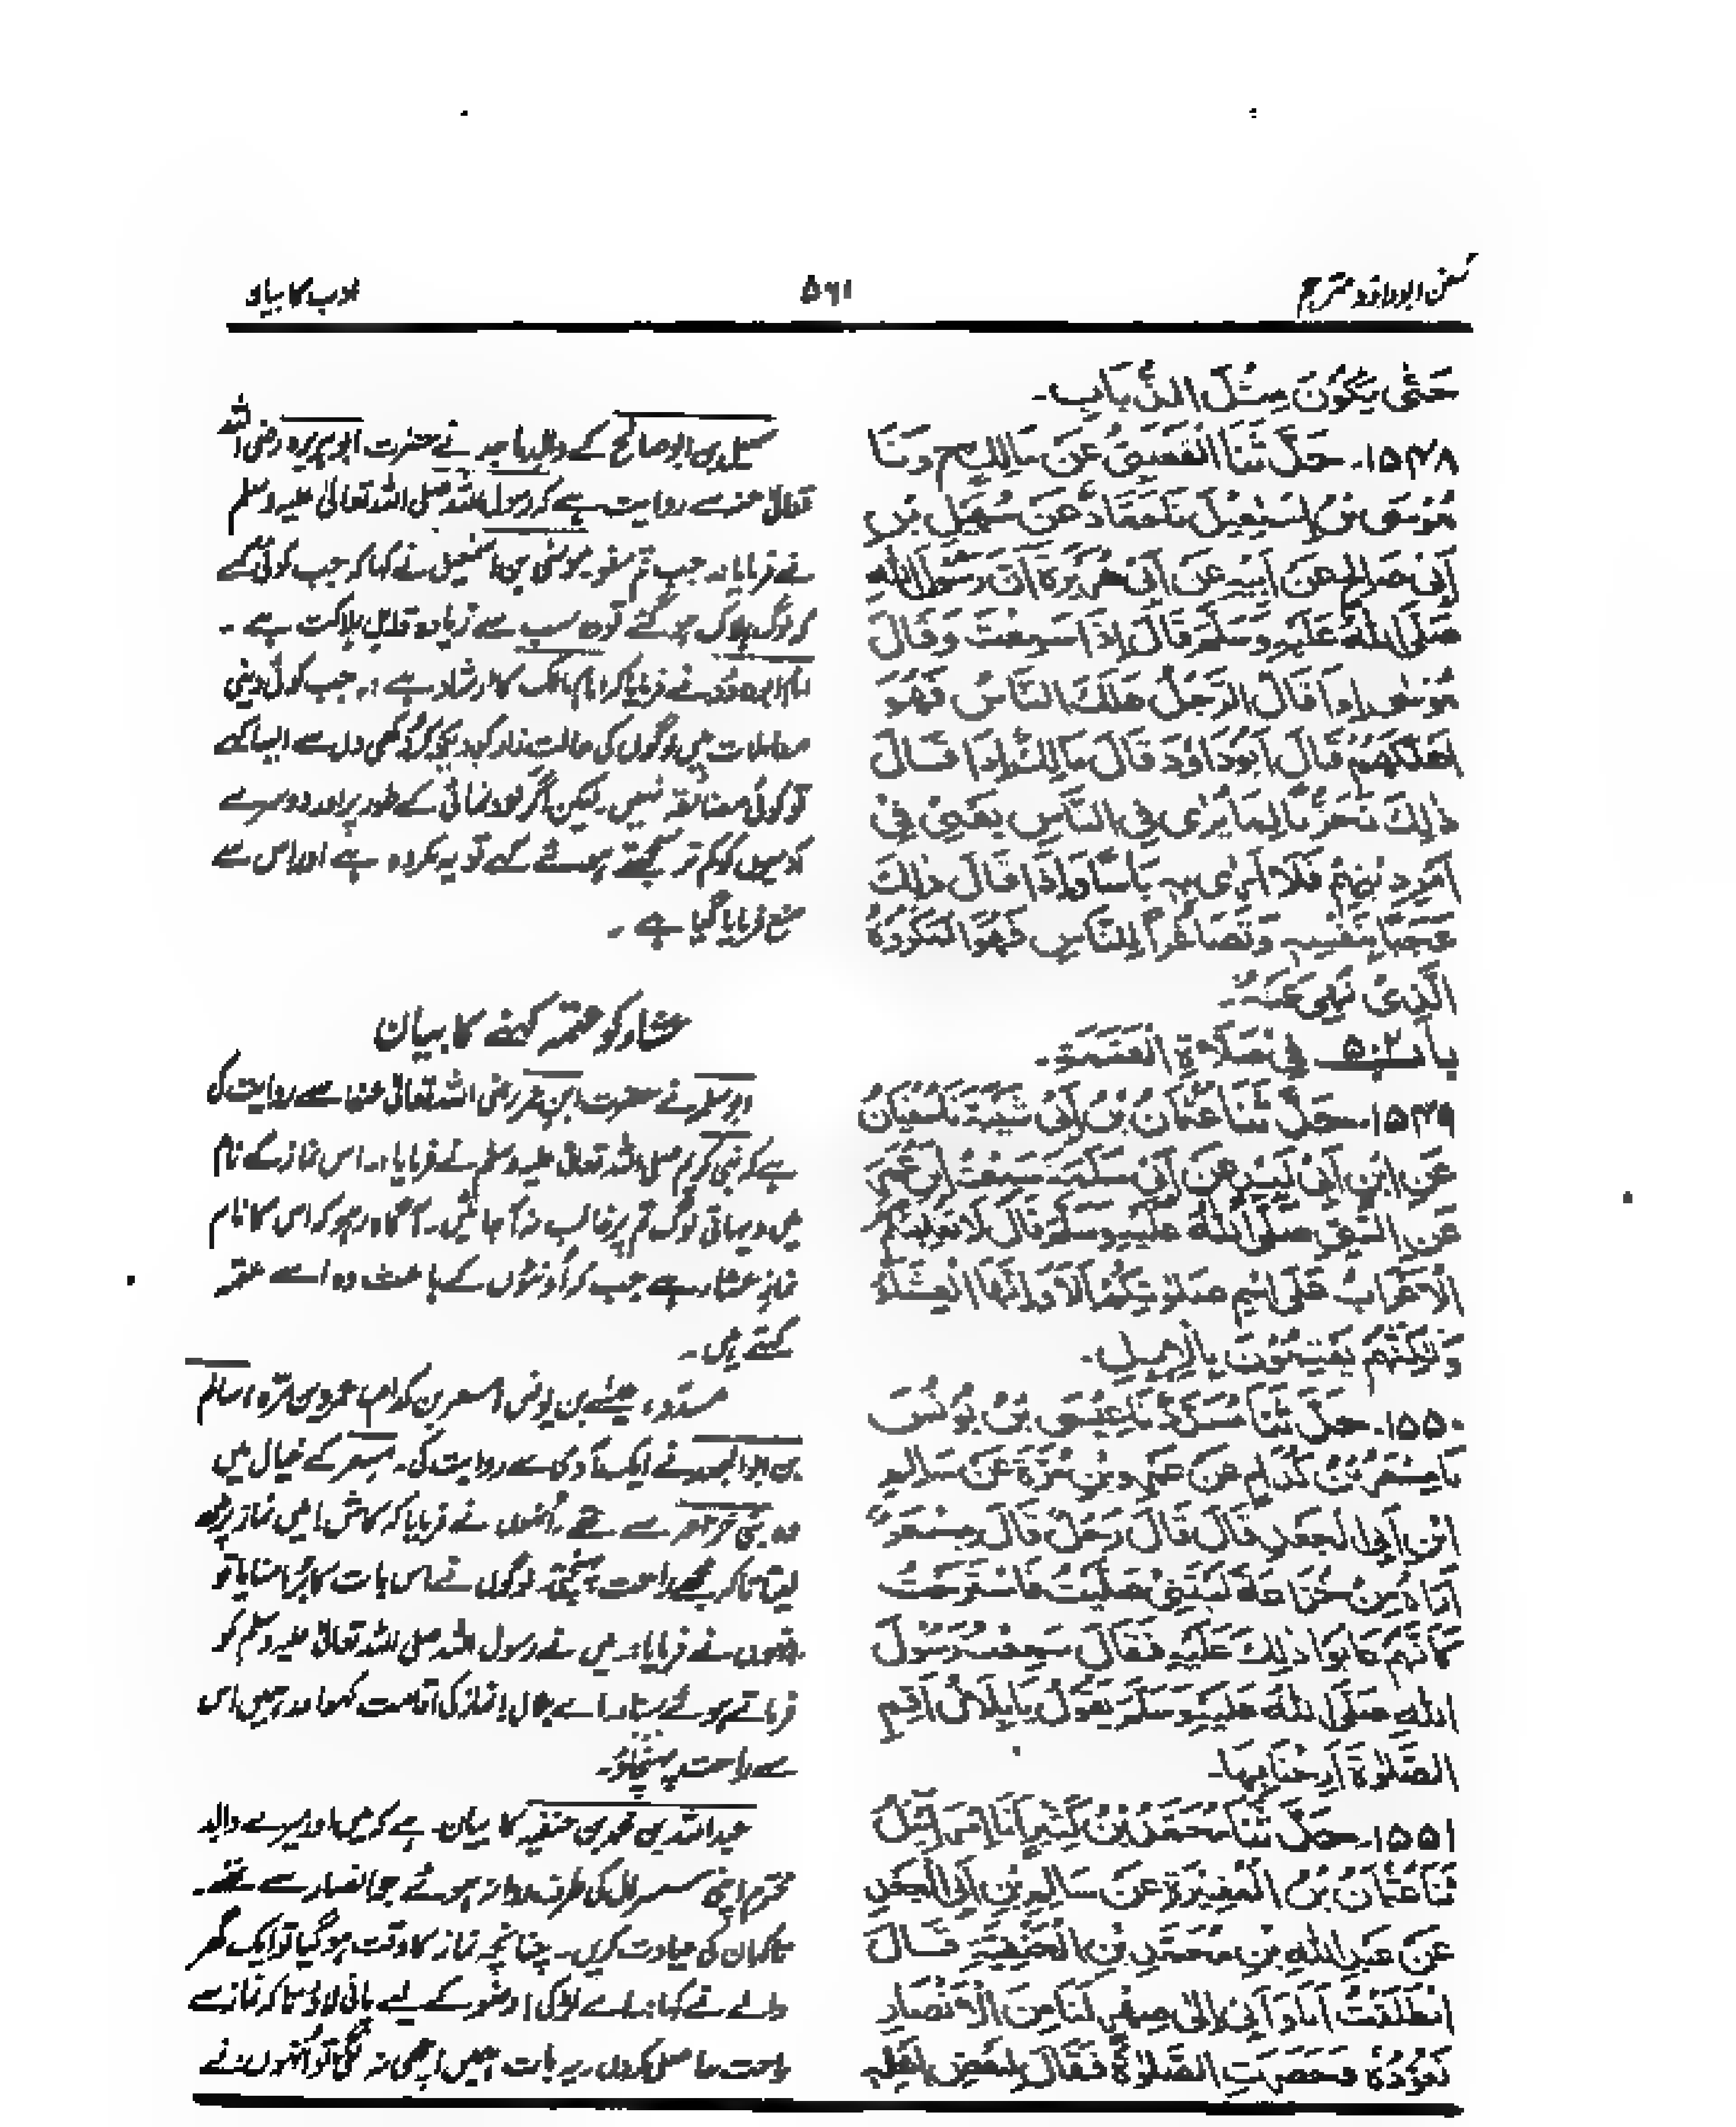 سنن ابوداؤد مترجم
۵۶۱
ادب کا بیان
حَتّٰى يَكُوْنَ مِثْلَ الذُّبَابِ۔
۱۵۴۸۔ حَدَّثَنَا الْقَعْنَبِيُّ عَنْ مَالِكٍ ح وَنَا
مُوْسَى بْنُ اِسْمٰعِيْلَ نَا حَمَّادٌ عَنْ سُهَيْلِ بْنِ
اَبِيْ صَالِحٍ عَنْ اَبِيْهِ عَنْ اَبِيْ هُرَيْرَةَ اَنَّ رَسُوْلَ اللّٰهِ
صَلَّى اللّٰهُ عَلَيْهِ وَسَلَّمَ قَالَ اِذَا سَمِعْتَ وَقَالَ
مُوْسٰى اِذَا قَالَ الرَّجُلُ هَلَكَ النَّاسُ فَهُوَ
اَهْلَكُهُمْ قَالَ اَبُوْدَاوُدَ قَالَ مَالِكٌ اِذَا قَالَ
ذٰلِكَ تَحَزُّنًا لِمَا يَرٰى فِي النَّاسِ يَعْنِيْ فِيْ
اَمْرِ دِيْنِهِمْ فَلَا اَرٰى بِهٖ بَأْسًا وَاِذَا قَالَ ذٰلِكَ
عُجْبًا بِنَفْسِهٖ وَتَصَاغُرًا لِلنَّاسِ فَهُوَ الْمَكْرُوْهُ
الَّذِيْ نُهِيَ عَنْهُ۔
بَابُ ۵۰۲ فِيْ صَلَاةِ الْعَتَمَةِ۔
۱۵۴۹۔ حَدَّثَنَا عُثْمَانُ بْنُ اَبِيْ شَيْبَةَ نَا سُفْيَانُ
عَنِ ابْنِ اَبِيْ لَبِيْدٍ عَنْ اَبِيْ سَلَمَةَ سَمِعْتُ ابْنَ عُمَرَ
عَنِ النَّبِيِّ صَلَّى اللّٰهُ عَلَيْهِ وَسَلَّمَ قَالَ لَا تَغْلِبَنَّكُمْ
الْاَعْرَابُ عَلَى اسْمِ صَلٰوتِكُمْ اَلَا وَاِنَّهَا الْعِشَاءُ
وَلٰكِنَّهُمْ يُعْتِمُوْنَ بِالْاِبِلِ۔
۱۵۵۰۔ حَدَّثَنَا مُسَدَّدٌ نَا عِيْسَى بْنُ يُوْنُسَ
نَا مِسْعَرُ بْنُ كِدَامٍ عَنْ عَمْرِو بْنِ مُرَّةَ عَنْ سَالِمِ
ابْنِ اَبِي الْجَعْدِ قَالَ قَالَ رَجُلٌ قَالَ مِسْعَرٌ
اُرَاهُ مِنْ خُزَاعَةَ لَيْتَنِيْ صَلَّيْتُ فَاسْتَرَحْتُ
فَكَاَنَّهُمْ عَابُوْا ذٰلِكَ عَلَيْهِ فَقَالَ سَمِعْتُ رَسُوْلَ
اللّٰهِ صَلَّى اللّٰهُ عَلَيْهِ وَسَلَّمَ يَقُوْلُ يَا بِلَالُ اَقِمِ
الصَّلٰوةَ اَرِحْنَا بِهَا۔
۱۵۵۱۔ حَدَّثَنَا مُحَمَّدُ بْنُ كَثِيْرٍ اَنَا اِسْرَائِيْلُ
نَا عُثْمَانُ بْنُ الْمُغِيْرَةِ عَنْ سَالِمِ بْنِ اَبِي الْجَعْدِ
عَنْ عَبْدِ اللّٰهِ بْنِ مُحَمَّدِ بْنِ الْحَنَفِيَّةِ قَالَ
انْطَلَقْتُ اَنَا وَاَبِيْ اِلٰى صِهْرٍ لَنَا مِنَ الْاَنْصَارِ
نَعُوْدُهٗ فَحَضَرَتِ الصَّلٰوةُ فَقَالَ لِبَعْضِ اَهْلِهٖ
سہیل بن ابوصالح کے والد ماجد نے حضرت ابوہریرہ رضی اللہ
تعالیٰ عنہ سے روایت ہے کہ رسول اللہ صلی اللہ تعالیٰ علیہ وسلم
نے فرمایا:۔ جب تم سنو۔ موسیٰ بن اسمٰعیل نے کہا کہ جب کوئی کہے
کہ لوگ ہلاک ہو گئے تو وہ سب سے زیادہ قابلِ ہلاکت ہے۔
امام ابوداؤد نے فرمایا کہ امام مالک کا ارشاد ہے:۔ جب کوئی دینی
معاملات میں لوگوں کی حالت زار کو دیکھ کر دکھی دل سے ایسا کہے
تو کوئی مضائقہ نہیں۔ لیکن اگر خود نمائی کے طور پر اور دوسرے
آدمیوں کو کم تر سمجھتے ہوئے کہے تو یہ مکروہ ہے اور اس سے
منع فرمایا گیا ہے۔
عشاء کو عتمہ کہنے کا بیان
ابوسلمہ نے حضرت ابن عمر رضی اللہ تعالیٰ عنہا سے روایت کی
ہے کہ نبی کریم صلی اللہ تعالیٰ علیہ وسلم نے فرمایا:۔ اس نماز کے نام
میں دیہاتی لوگ تم پر غالب نہ آ جائیں۔ آگاہ رہو کہ اس کا نام
نمازِ عشاء ہے جب کہ اونٹوں کے باعث وہ اسے عتمہ
کہتے ہیں۔
مسدد، عیسٰے بن یونس، مسعر بن کدام، عمرو بن مرّہ، سالم
بن ابوالجعد نے ایک آدمی سے روایت کی۔ مسعر کے خیال میں
وہ بنی خزاعہ سے تھے۔ اُنہوں نے فرمایا کہ کاش! میں نماز پڑھ
لیتا تاکہ مجھے راحت پہنچتی۔ لوگوں نے اس بات کا بُرا منایا تو
انہوں نے فرمایا:۔ میں نے رسول اللہ صلی اللہ تعالیٰ علیہ وسلم کو
فرماتے ہوئے سنا:۔ اے بلال! نماز کی اقامت کہو اور ہمیں اس
سے راحت پہنچاؤ۔
عبداللہ بن محمد بن حنفیہ کا بیان ہے کہ میں اور میرے والد
محترم اپنی سسرال کی طرف روانہ ہوئے جو انصار سے تھے۔
تاکہ ان کی عیادت کریں۔ چنانچہ نماز کا وقت ہو گیا تو ایک گھر
والے نے کہا:۔ اے لڑکی! وضو کے لیے پانی لاؤ تاکہ نماز سے
راحت حاصل کروں۔ یہ بات ہمیں اچھی نہ لگی تو انہوں نے